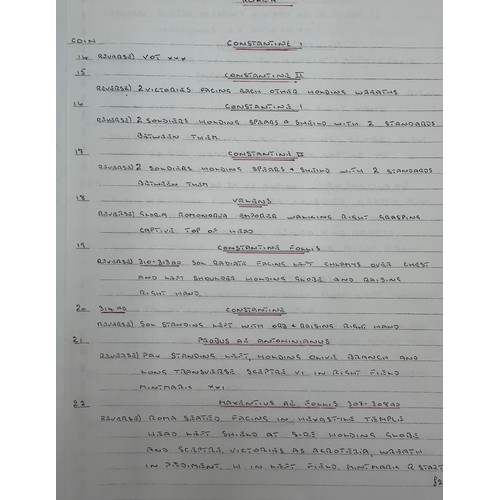 ROMAN
COIN CONSTANTINE I
14 REVERSE) VOT XXX
15 CONSTANTINE II
REVERSE) 2 VICTORIES FACING EACH OTHER HOLDING WREATHS
16 CONSTANTINE I
REVERSE) 2 SOLDIERS HOLDING SPEARS & SHIELD WITH 2 STANDARDS
BETWEEN THEM.
17 CONSTANTINE II
REVERSE) 2 SOLDIERS HOLDING SPEARS & SHIELD WITH 2 STANDARDS
BETWEEN THEM
18 VALENS
REVERSE) GLORA ROMONORVA EMPORER WALKING RIGHT GRASPING
CAPTIVE TOP OF HEAD
19 CONSTANTINE FOLLIS
REVERSE) 310-313AD SOL RADIATE FACING LEFT CHLAMYS OVER CHEST
AND LEFT SHOULDER HOLDING GLOBE AND RAISING
RIGHT HAND.
20 314 AD CONSTANTINE
REVERSE) SOL STANDING LEFT WITH ORB & RAISING RIGHT HAND
21 PROBUS AE ANTONINIANUS
REVERSE) PAX STANDING LEFT, HOLDING OLIVE BRANCH AND
LONG TRANSVERSE SCEPTRE VI IN RIGHT FIELD
MINTMARK XXI
22 MAXENTIUS AE FOLLIS 307-308AD
REVERSE) ROMA SEATED FACING IN HEXASTYLE TEMPLE
HEAD LEFT SHIELD AT SIDE HOLDING GLOBE
AND SCEPTRE. VICTORIES AS ACROTERIA, WREATH
IN PEDIMENT. H IN LEFT FIELD. MINTMARK R START